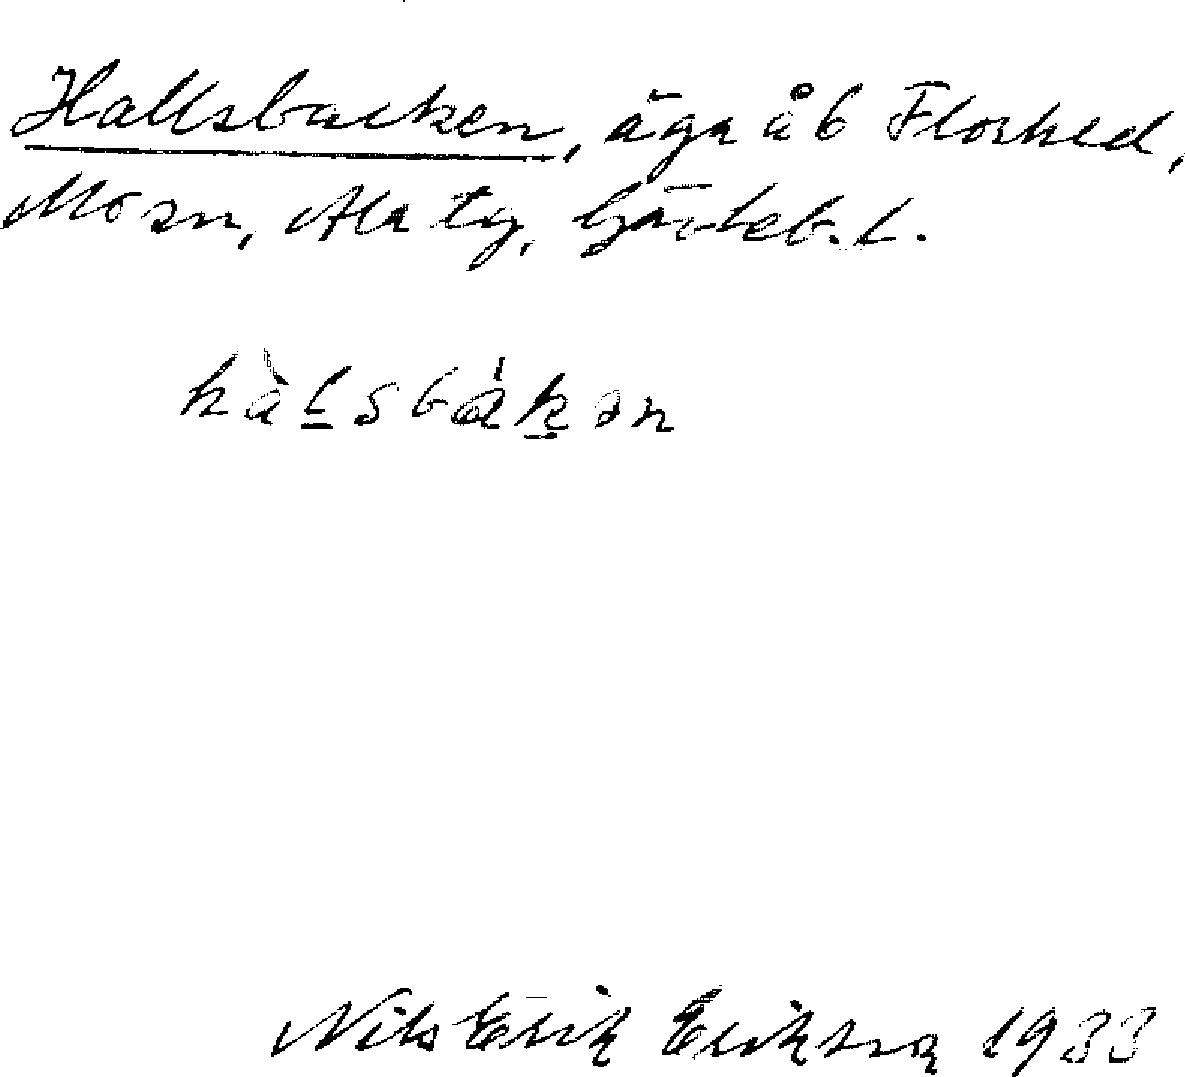 Hallsbacken, äga å b Florhed,
Mo sn, Ala tg, Gävleb. l.
hàlsbákən
Nils Erik Eriksson 1933